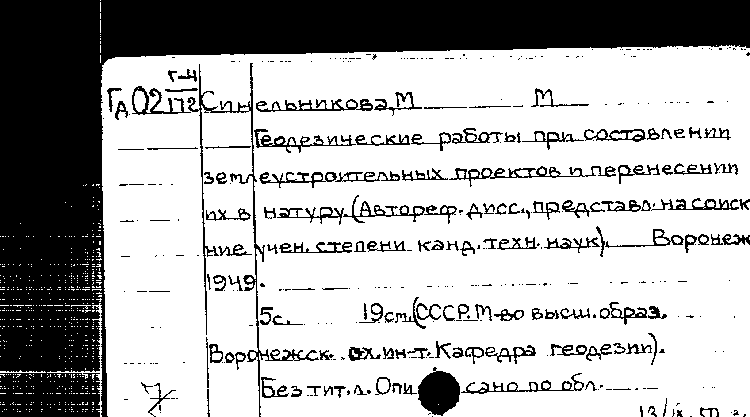 Г-4
Гд 02 172 Синельникова, М М
Геодезические работы при составлении
землеустроительных проектов и перенесении
их в натуру. (Автореф. дисс., представл. на соиск
ние учен. степени канд. техн. наук). Воронеж
1949.
5с. 19см. (СССР. М-во высш. образ.
Воронежск. сх. ин-т. Кафедра геодезии).
Без тит. л. Описано по обл.